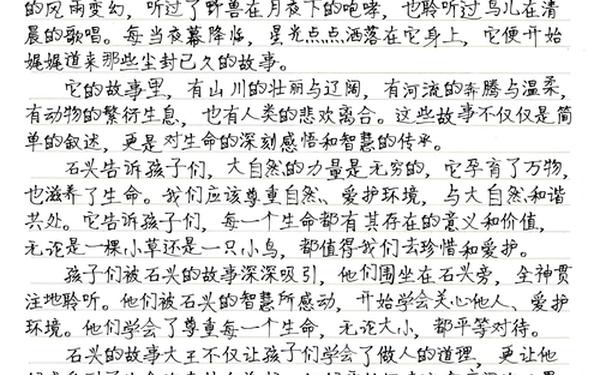 的风雨变幻，听过了野兽在月夜下的咆哮，也聆听过鸟儿在清
晨的歌唱。每当夜幕降临，星光点点洒落在它身上，它便开始
娓娓道来那些尘封已久的故事。
它的故事里，有山川的壮丽与辽阔，有河流的奔腾与温柔，
有动物的繁衍生息，也有人类的悲欢离合。这些故事不仅仅是简
单的叙述，更是对生命的深刻感悟和智慧的传承。
石头告诉孩子们，大自然的力量是无穷的，它孕育了万物，
也滋养了生命。我们应该尊重自然、爱护环境，与大自然和谐
共处。它告诉孩子们，每一个生命都有其存在的意义和价值，
无论是一棵小草还是一只小鸟，都值得我们去珍惜和爱护。
孩子们被石头的故事深深吸引，他们围坐在石头旁，全神贯
注地聆听。他们被石头的智慧所感动，开始学会关心他人、爱护
环境。他们学会了尊重每一个生命，无论大小，都平等对待。
石头的故事大王不仅让孩子们学会了做人的道理，更让他